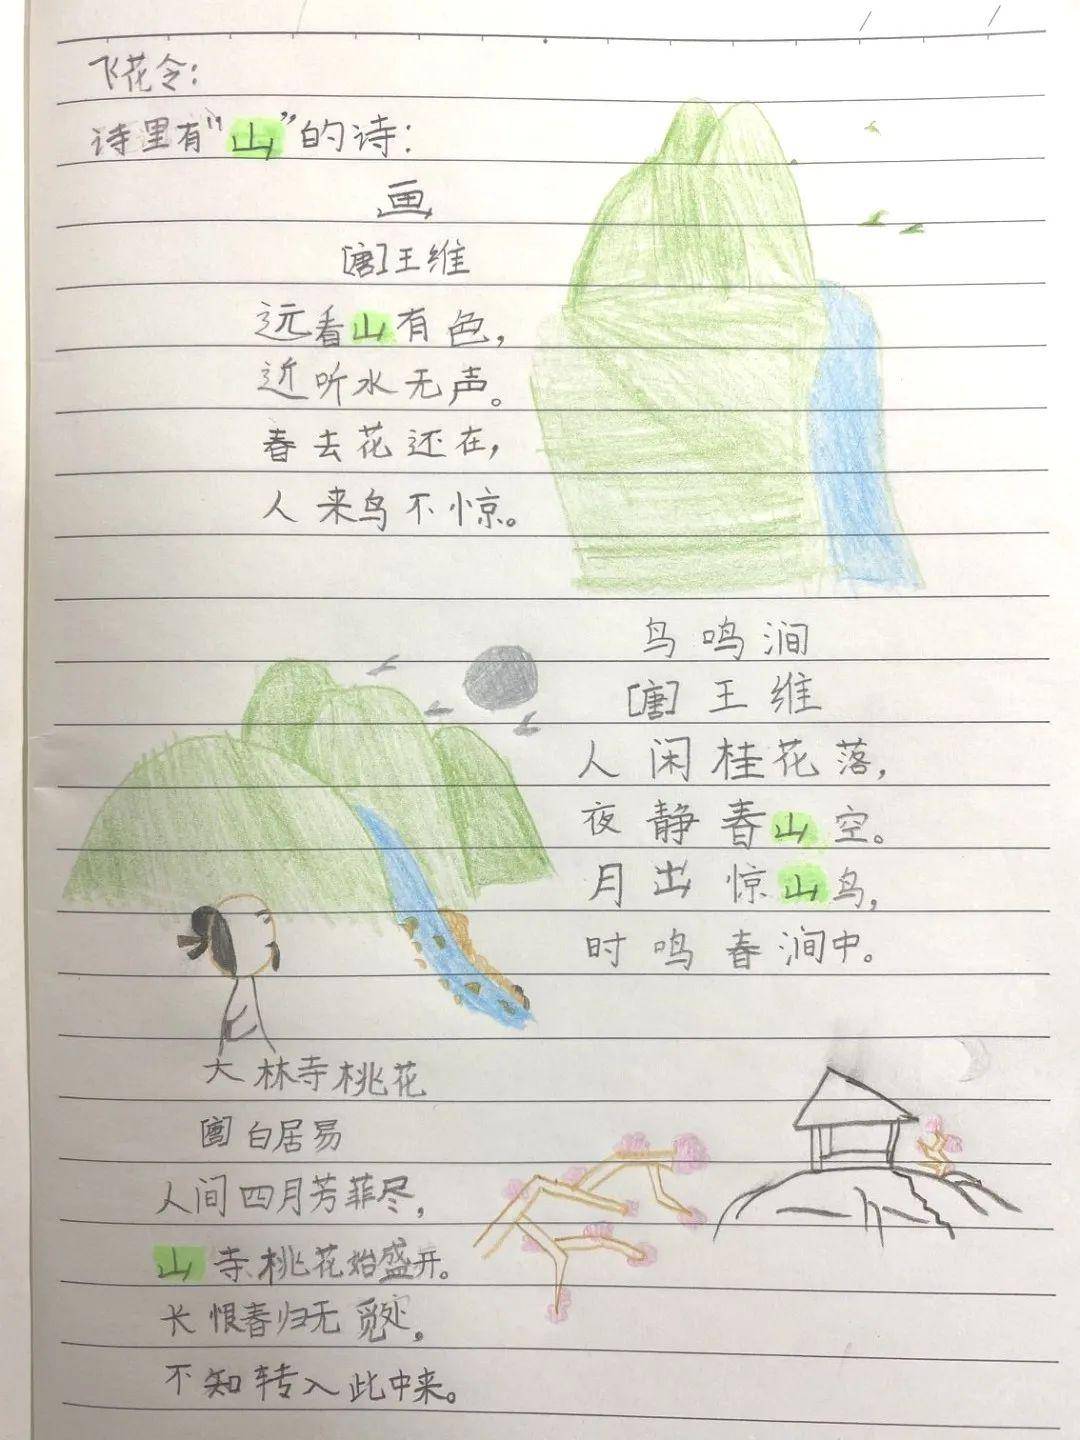 飞花令:
诗里有“山”的诗:
画
[唐]王维
远看山有色,
近听水无声。
春去花还在,
人来鸟不惊。
鸟鸣涧
[唐]王维
人闲桂花落,
夜静春山空。
月出惊山鸟,
时鸣春涧中。
大林寺桃花
[唐]白居易
人间四月芳菲尽,
山寺桃花始盛开。
长恨春归无觅处,
不知转入此中来。